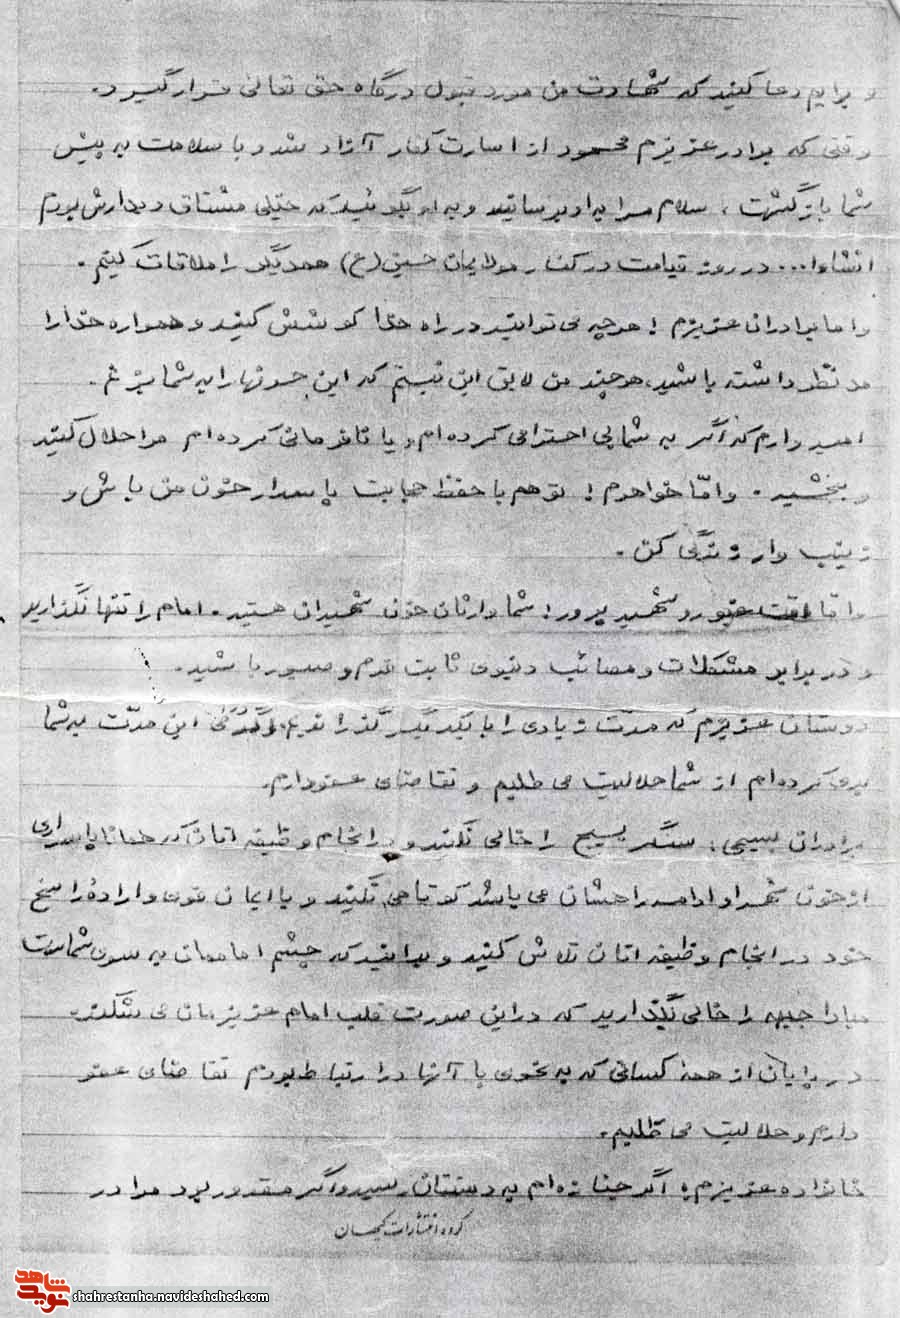 و برایم دعا کنید که شهادت من مورد قبول درگاه حق تعالی قرار گیرد.
وقتی که برادر عزیزم محمود از اسارت کفار آزاد شد و با سلامت به پیش
شما بازگشت، سلام مرا به او برسانید و به او بگوئید که خیلی مشتاق دیدارش بودم
انشاءا... در روز قیامت در کنار مولایمان حسین (ع) همدیگر را ملاقات کنیم.
و اما برادران عزیزم! هر چه می توانید در راه خدا کوشش کنید و همواره خدا را
مد نظر داشته باشید، هر چند من لایق این نیستم که این حرفها را به شما بزنم.
امیدوارم که اگر به شما بی احترامی کرده ام و یا نافرمانی کرده ام مرا حلال کنید
و ببخشید. و امّا خواهرم! تو هم با حفظ حجابت پاسدار خون من باش و
زینب وار زندگی کن.
و امّا امّت غیور و شهید پرور! شما وارثان خون شهیدان هستید. امام را تنها نگذارید
و در برابر مشکلات و مصائب دنیوی ثابت قدم و صبور باشید.
دوستان عزیزم که مدّت زیادی را با یکدیگر گذراندیم، اگر در این مدّت به شما
بدی کرده ام از شما حلالیت می طلبم و تقاضای عفو دارم.
برادران بسیجی! سنگر بسیج را خالی نکنید و در انجام وظیفه اتان که همانا پاسداری
از خون شهدا و ادامه راهشان می باشد کوتاهی نکنید و با ایمان قوی و اراده راسخ
خود در انجام وظیفه اتان تلاش کنید و بدانید که چشم اماممان به سوی شماست
مبادا جبهه را خالی بگذارید که در این صورت قلب امام عزیزمان می شکند.
در پایان از همهٔ کسانی که به نحوی با آنها در ارتباط بودم تقاضای عفو
دارم و حلالیت می طلبم.
خانواده عزیزم! اگر جنازه ام به دستتان رسید و اگر مقدور بود مرا در
گروه انتشارات کیهان
شاهد
نوید
shahrestanha.navideshahed.com